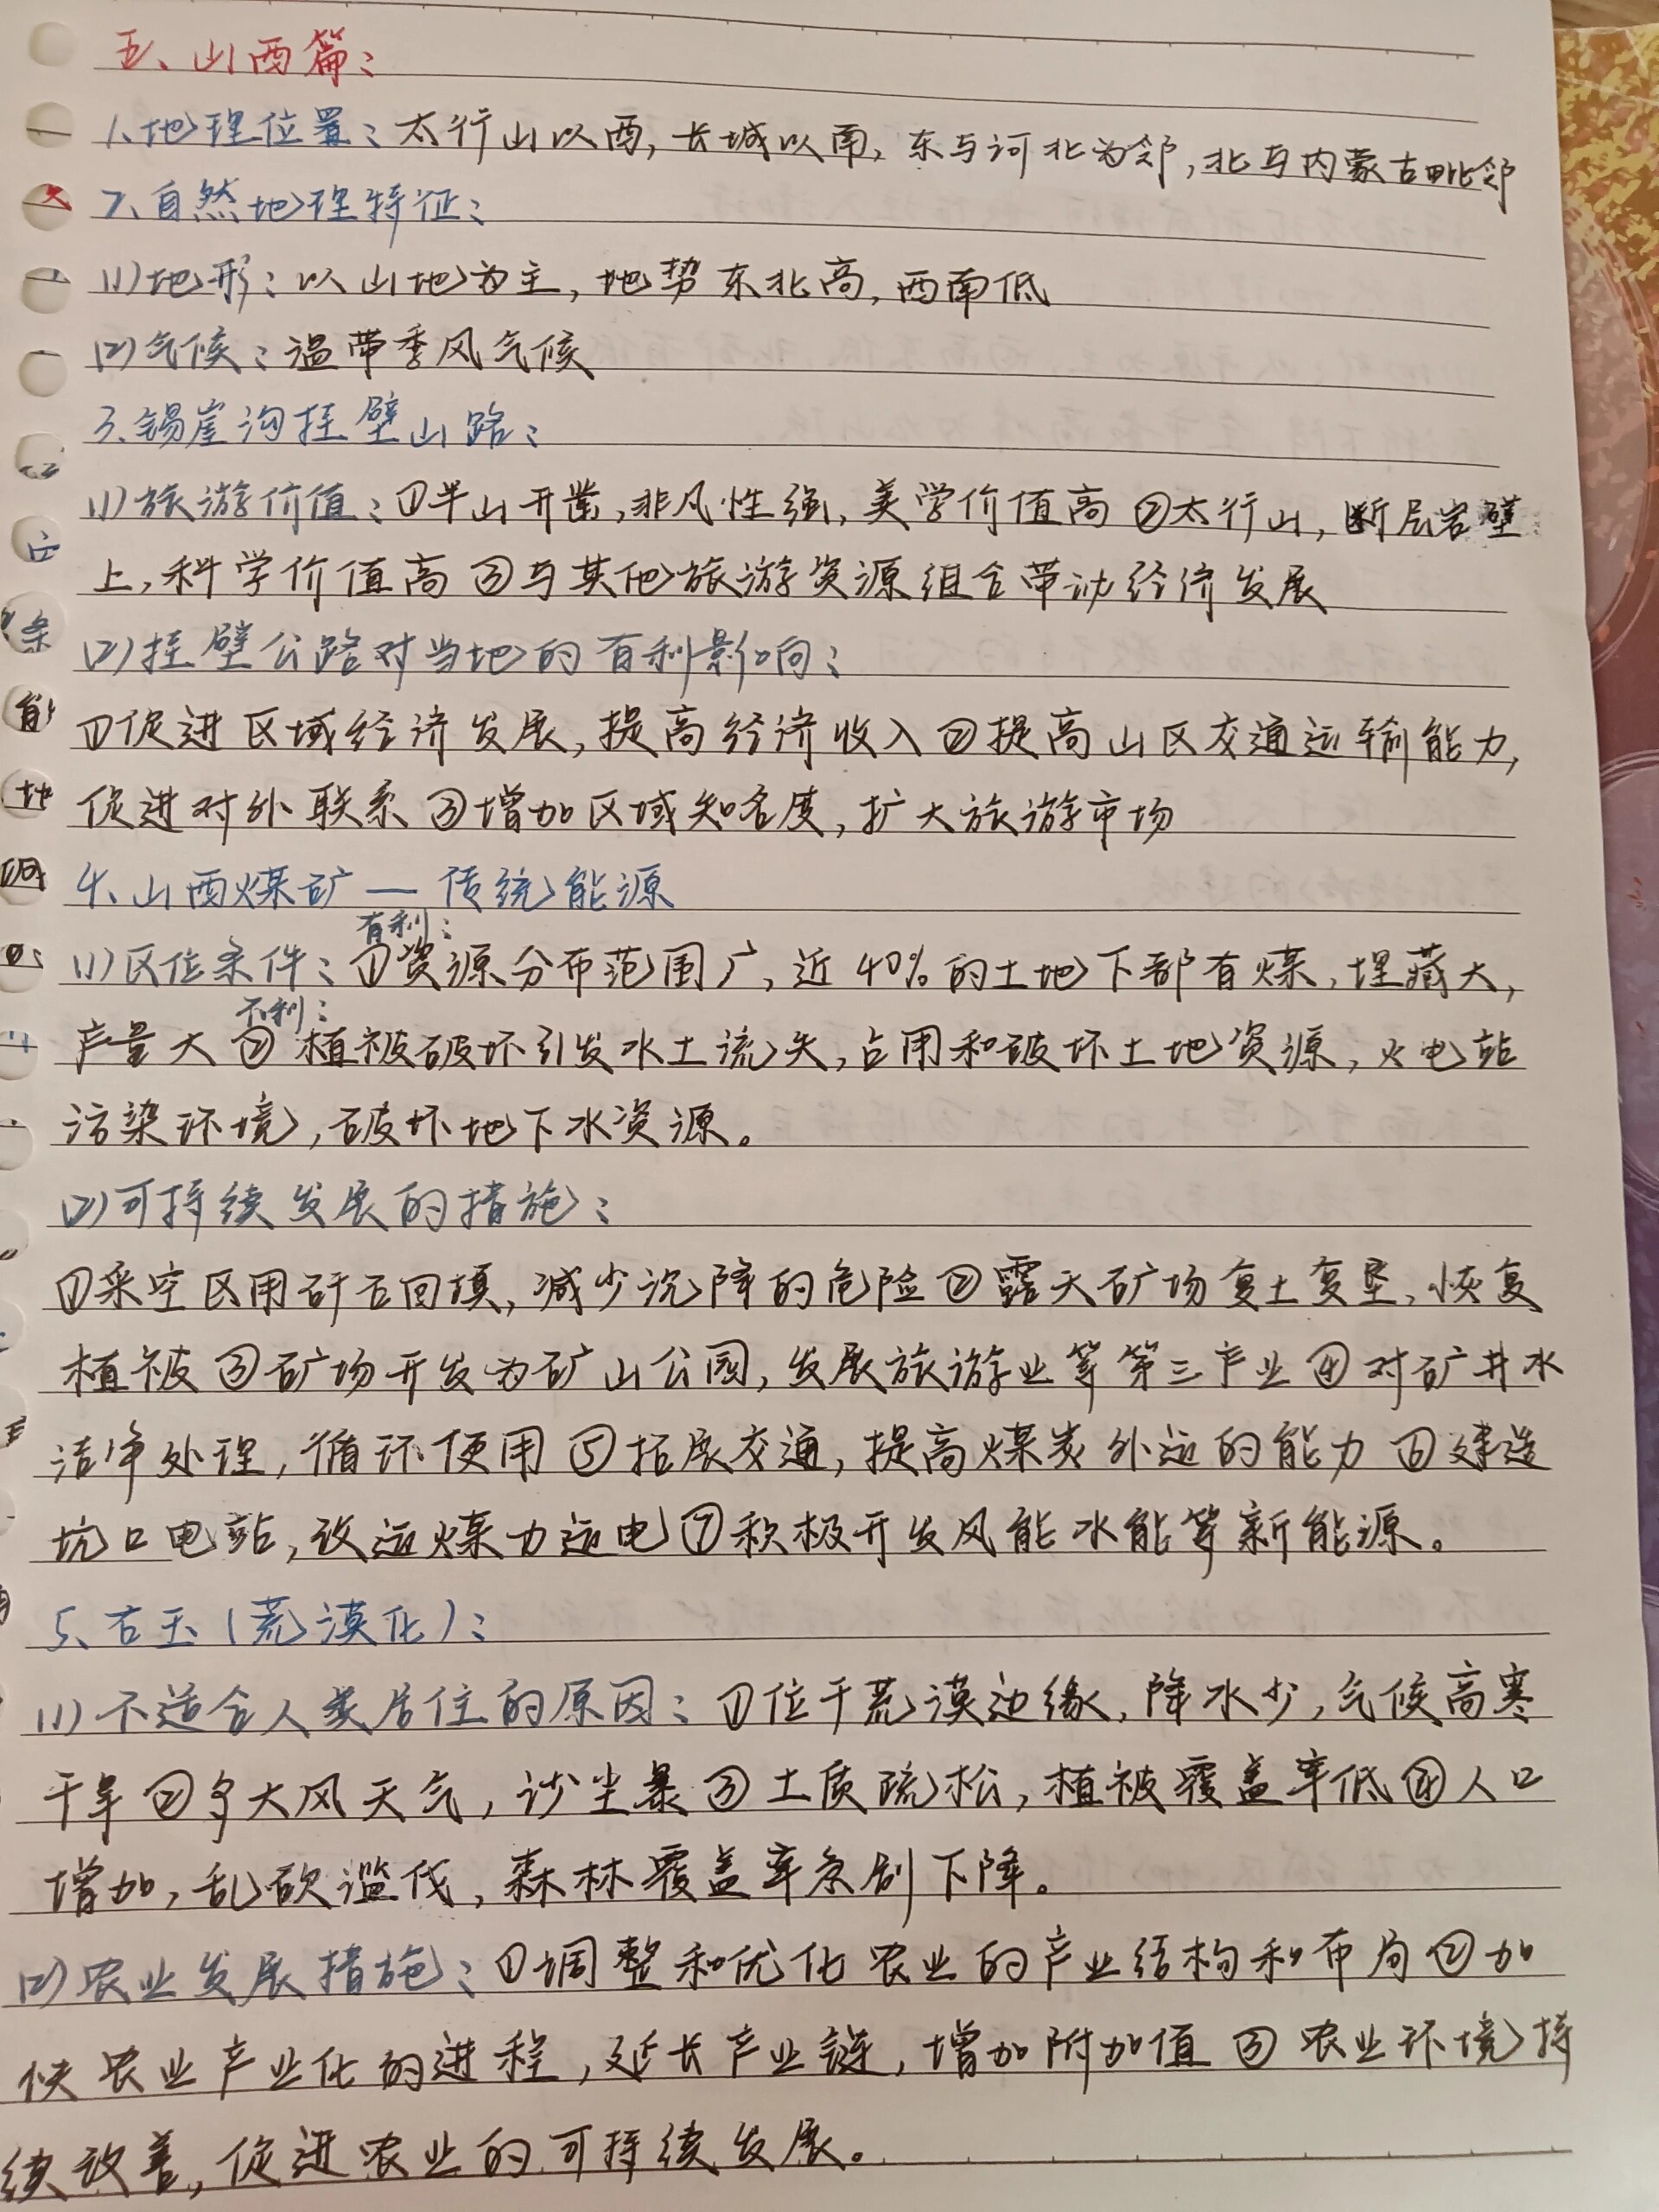 五、山西篇：
1、地理位置：太行山以西，长城以南，东与河北为邻，北与内蒙古毗邻
2、自然地理特征：
(1)地形：以山地为主，地势东北高，西南低
(2)气候：温带季风气候
3、锡崖沟挂壁山路：
(1)旅游价值：①半山开凿，非凡性强，美学价值高 ②太行山，断层岩壁
上，科学价值高 ③与其他旅游资源组合带动经济发展
(2)挂壁公路对当地的有利影响：
①促进区域经济发展，提高经济收入 ②提高山区交通运输能力，
促进对外联系 ③增加区域知名度，扩大旅游市场
4、山西煤矿 — 传统能源
有利：
(1)区位条件：①资源分布范围广，近40%的土地下部有煤，埋藏大，
不利：
产量大 ② 植被破坏引发水土流失，占用和破坏土地资源，火电站
污染环境，破坏地下水资源。
(2)可持续发展的措施：
①采空区用矸石回填，减少沉降的危险 ② 露天矿场复土复垦，恢复
植被 ③矿场开发为矿山公园，发展旅游业等第三产业 ④ 对矿井水
洁净处理，循环使用 ⑤拓展交通，提高煤炭外运的能力 ⑥建造
坑口电站，改运煤力运电 ⑦积极开发风能水能等新能源。
5、右玉（荒漠化）：
(1)不适合人类居住的原因：①位于荒漠边缘，降水少，气候高寒
干旱 ②多大风天气，沙尘暴 ③土质疏松，植被覆盖率低 ④人口
增加，乱砍滥伐，森林覆盖率急剧下降。
(2)农业发展措施：①调整和优化农业的产业结构和布局 ②加
快农业产业化的进程，延长产业链，增加附加值 ③ 农业环境持
续改善，促进农业的可持续发展。